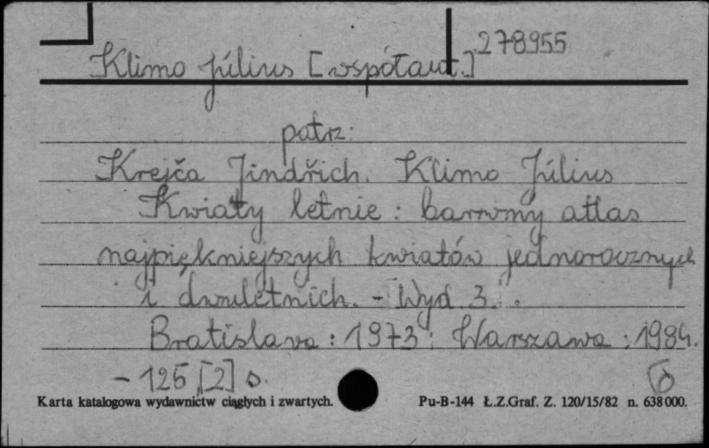 278955
Klimo Július [współaut.]
patrz:
Krejča Jindřich. Klimo Július
Kwiaty letnie : barwny atlas
najpiękniejszych kwiatów jednorocznych
i dwuletnich. - Wyd 3.
Bratislava : 1973 ; Warszawa : 1984.
- 125, [2] s.
Karta katalogowa wydawnictw ciągłych i zwartych. Pu-B-144 Ł.Z.Graf. Z. 120/15/82 n. 638 000.